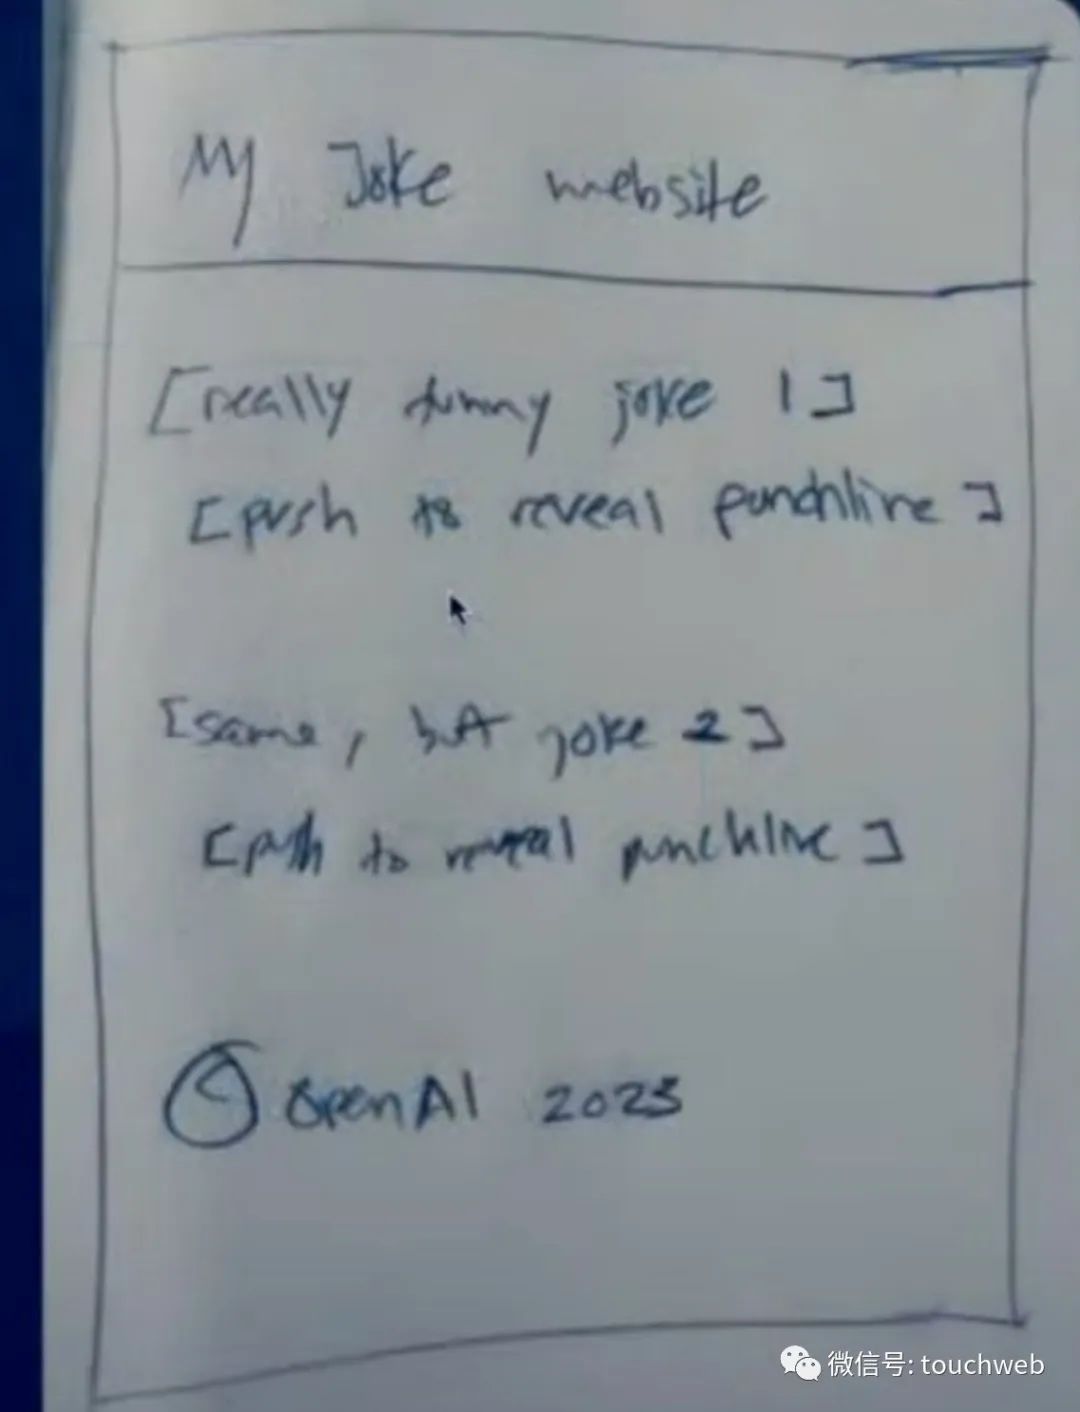 My Joke website
[really funny joke 1]
[push to reveal punchline]
[same, but joke 2]
[push to reveal punchline]
© OpenAI 2023
微信号: touchweb